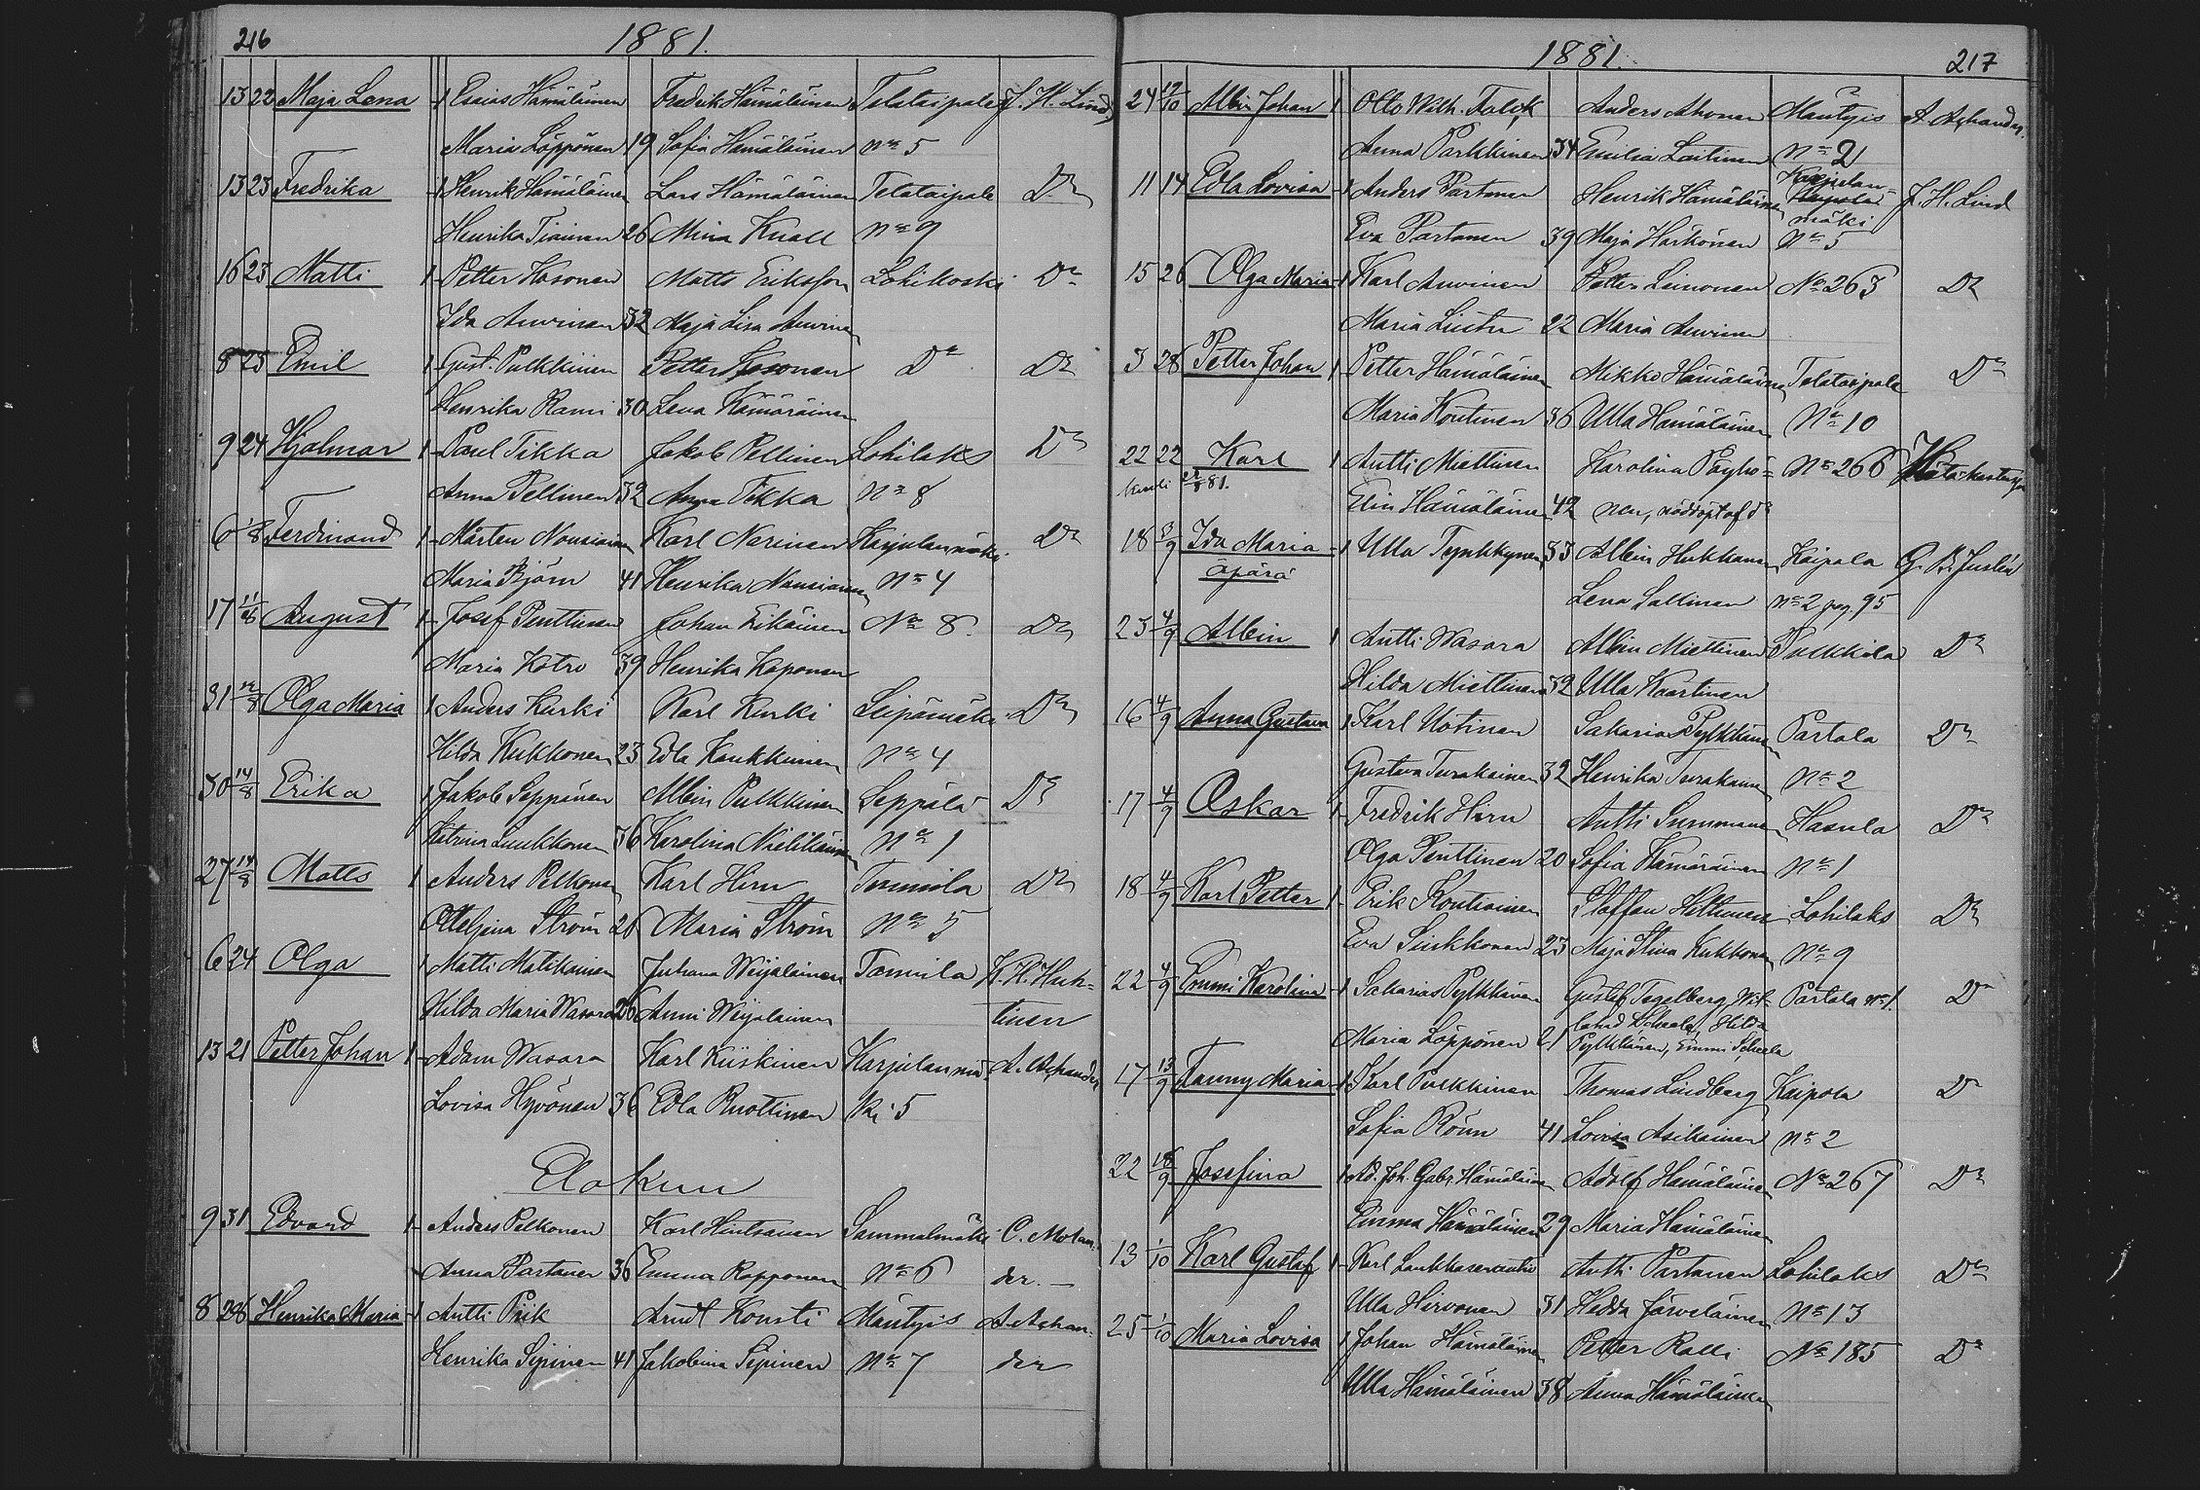 216 1881.
13 22 Maja Lena 1 Esaias Hämäläinen Fredrik Hämäläinen Telataipale J. H. Lind
Maria Löppönen 19 Sofia Hämäläinen No 5
13 23 Fredrika 1 Henrik Hämäläinen Lars Hämäläinen Telataipale Do
Henrika Tiainen 26 Mina Knall No 9
16 23 Matti 1 Petter Kosonen Matts Eriksson Lohikoski Do
Ida Auvinen 32 Maja Lisa Auvinen
8 25 Emil 1 Gust. Pulkkinen Petter Kosonen Do Do
Henrika Rami 30 Lena Kämäräinen
9 24 Hjalmar 1 Paul Tikka Jakob Pellinen Lohilaks Do
Anna Pellinen 32 Anna Tikka No 8
6 1/8 Ferdinand 1 Mårten Nousiainen Karl Narinen Karjulanmäki Do
Maria Björn 41 Henrika Nousiainen No 4
17 August 1 Josef Penttinen Johan Eikäinen No 8. Do
Maria Kotro 39 Henrika Kaponen
31 Olga Maria 1 Anders Kurki Karl Kurki Leipämäki Do
Hilda Kukkonen 23 Edla Kaukkinen No 4
30 14/8 Erika 1 Jakob Seppänen Albin Pulkkinen Seppälä Do
Katrina Luukkonen 36 Karolina Nielikäinen No 1
27 14/8 Matts 1 Anders Pelkonen Karl Hirn Tommila Do
Otteljina Ström 26 Maria Ström No 5
6 24 Olga 1 Matti Matikainen Juhana Weijalainen Tommila K. H. Huh-
Hilda Maria Wasara 26 Anni Weijalainen tinen
13 21 Petter Johan 1 Adam Wasara Karl Kiiskinen Karjulanmä- A. Açhander
Lovisa Hyvönen 36 Edla Ruottinen ki 5
Elokuu
9 31 Edvard 1 Anders Pelkonen Karl Hintsanen Sammalmäki C. Molan-
Anna Partanen 36 Emma Ropponen No 6 der.
8 28 Henrika Maria 1 Antti Piik Arndt Konsti Mäntyis A. Açhan-
Henrika Sipinen 41 Jakobina Sipinen No 7 der
1881. 217
24 Albin Johan 1 Otto Wilh. Falck Anders Ahonen Mäntyis A. Açhander
Anna Parkkinen 34 Emilia Laitinen No 2
11 14 Edla Lovisa 1 Anders Partanen Henrik Hämäläinen Karjulan-mäki J. H. Lind
Eva Partanen 39 Maja Härkönen No 5
15 26 Olga Maria 1 Karl Auvinen Petter Leinonen No 263 Do
Maria Lister 22 Maria Auvinen
3 28 Petter Johan 1 Petter Hämäläinen Mikko Hämäläinen Telataipale Do
Maria Kontinen 36 Ulla Hämäläinen No 10
22 22 Karl 1 Antti Miettinen Karolina Pöyhö- No 266 Hätäkastaja
Elin Hämäläinen 42 nen, nöddöpt af do
18 Ida Maria 1 Ulla Tynkkynen 33 Albin Hukkanen Kaipola G. A. Juslén
äpärä Lena Sallinen No 2 pag. 95
23 4/9 Albin 1 Antti Wasara Albin Miettinen Pulkkila Do
Hilda Miettinen 32 Ulla Kaartinen
16 4/9 Anna Gustava 1 Karl Uotinen Sakarias Pylkkänen Partala Do
Gustava Turakainen 32 Henrika Turakainen No 2
17 4/9 Oskar 1 Fredrik Hirn Antti Summanen Hasula Do
Olga Penttinen 20 Sofia Kämäräinen No 1
18 4/9 Karl Petter 1 Erik Kontiainen Staffan Heltunen Lohilaks Do
Eva Sinkkonen 23 Maja Stina Kukkonen No 9
22 4/9 Emmi Karolina 1 Sakarias Pylkkänen Gustaf Tegelberg, Wil- Partala No 1. Do
Maria Löppönen 21 hard Scheele, Hilda
Pylkkänen, Emmi Scheele
17 13/9 Fanny Maria 1 Karl Pulkkinen Thomas Lindberg Kaipola Do
Sofia Rönn 41 Lovisa Asikainen No 2
22 18/9 Josefina 1 Ad. Joh. Gabr. Hämäläinen Adolf Hämäläinen No 267 Do
Emma Hämäläinen 29 Maria Hämäläinen
13 1/10 Karl Gustaf 1 Karl Antti Partanen Lohilaks Do
Ulla Hirvonen 31 Hedda Järveläinen No 13
25 1/10 Maria Lovisa 1 Johan Hämäläinen Petter Ralli No 185 Do
Ulla Hämäläinen 38 Anna Hämäläinen